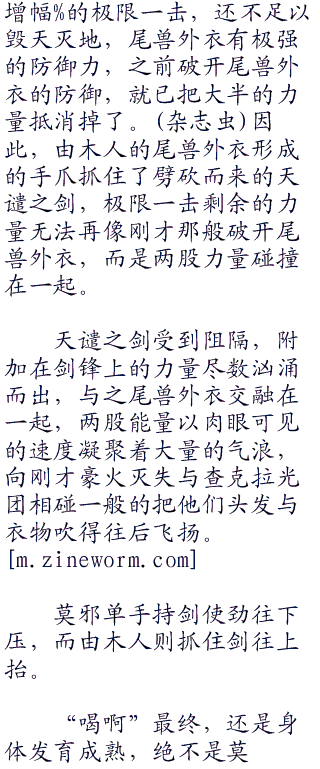 增幅%的极限一击，还不足以
毁天灭地，尾兽外衣有极强
的防御力，之前破开尾兽外
衣的防御，就已把大半的力
量抵消掉了。(杂志虫)因
此，由木人的尾兽外衣形成
的手爪抓住了劈砍而来的天
谴之剑，极限一击剩余的力
量无法再像刚才那般破开尾
兽外衣，而是两股力量碰撞
在一起。
天谴之剑受到阻隔，附
加在剑锋上的力量尽数汹涌
而出，与之尾兽外衣交融在
一起，两股能量以肉眼可见
的速度凝聚着大量的气浪，
向刚才豪火灭失与查克拉光
团相碰一般的把他们头发与
衣物吹得往后飞扬。
[m.zineworm.com]
莫邪单手持剑使劲往下
压，而由木人则抓住剑往上
抬。
“喝啊”最终，还是身
体发育成熟，绝不是莫